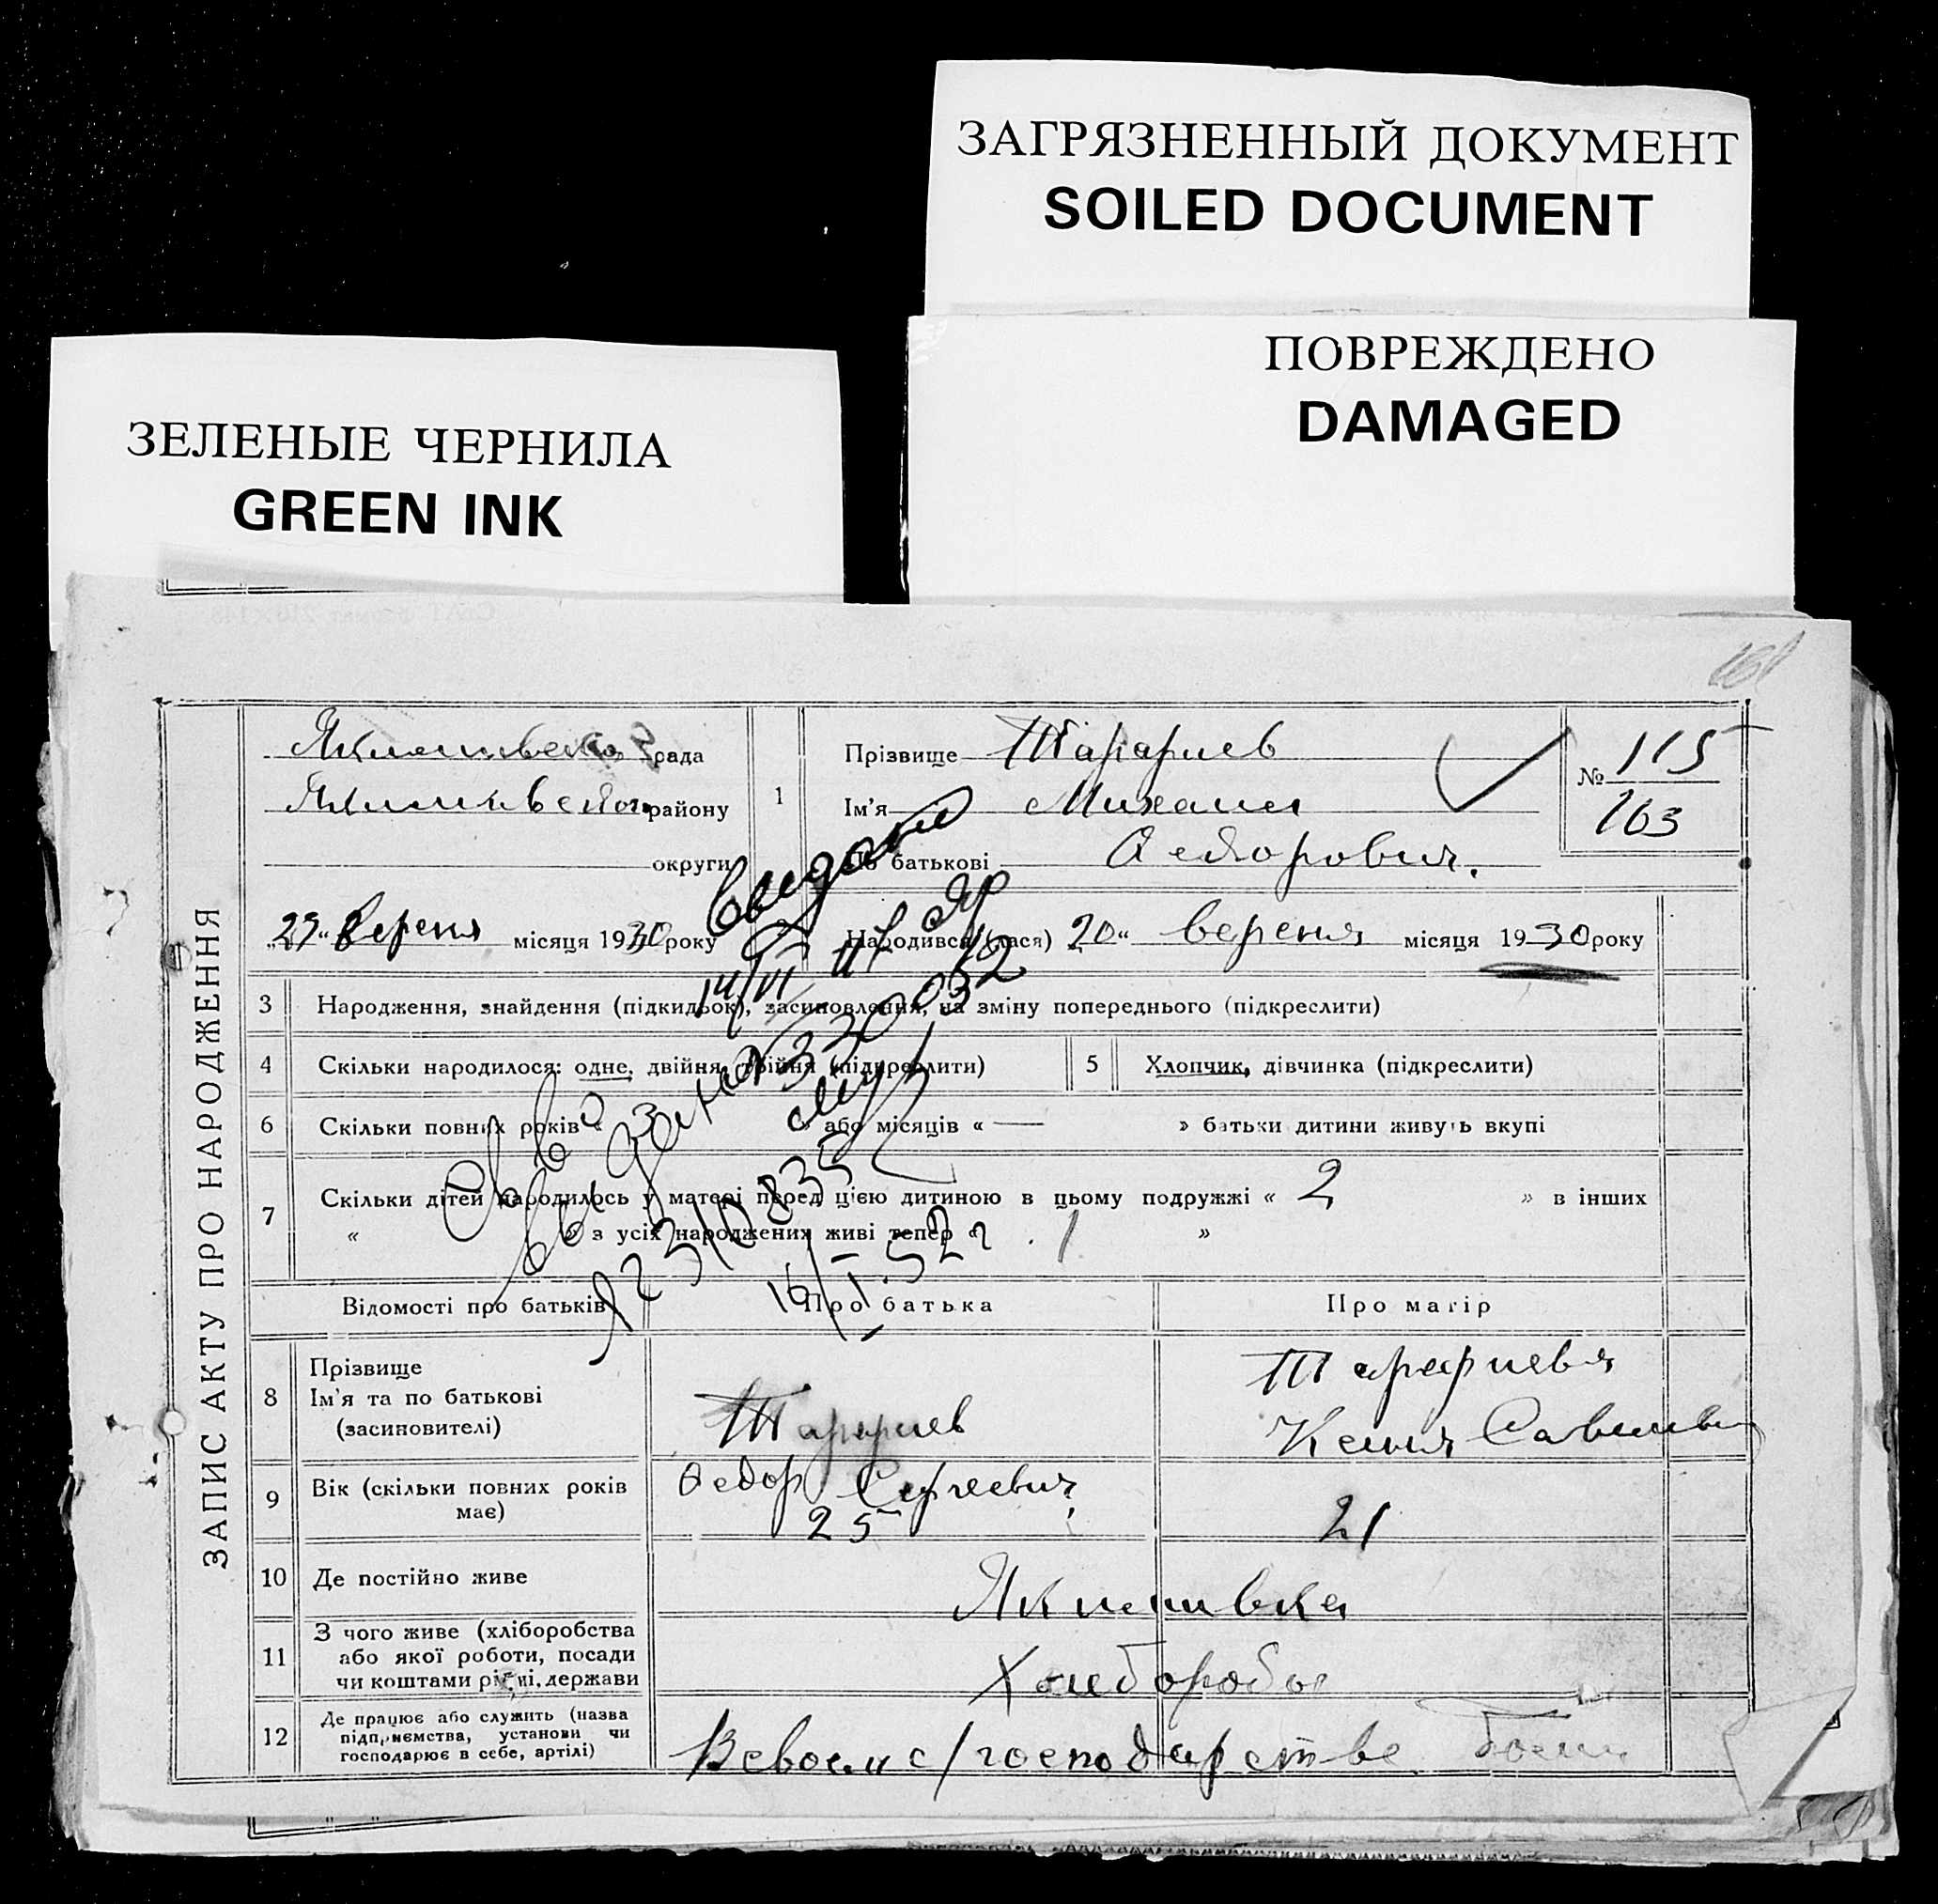 ЗАГРЯЗНЕННЫЙ ДОКУМЕНТ
SOILED DOCUMENT
ПОВРЕЖДЕНО
DAMAGED
ЗЕЛЕНЫЕ ЧЕРНИЛА
GREEN INK
ЗАПИС АКТУ ПРО НАРОДЖЕННЯ
рада
району
округи
1
Прізвище Тарариев
Ім'я Михаил
По батькові Федорович.
№ 115
163
„23“ вереня місяця 1930 року
Народився (лася) 20 “ вереня місяця 1930 року
3 Народження, знайдення (підкидьок), засиновлення, на зміну попереднього (підкреслити)
4 Скільки народилося: одне, двійня, трійня (підкреслити)
5 Хлопчик, дівчинка (підкреслити)
6 Скільки повних років « 3 » або місяців « — » батьки дитини живуть вкупі
7 Скільки дітей народилось у матері перед цією дитиною в цьому подружжі « 2 » в інших
« » з усіх народжених живі тепер « 1 »
выдано
16/I.52 г
Відомості про батьків
Про батька
Про матір
8 Прізвище
Ім'я та по батькові
(засиновителі)
Тарариев
Федор Сергеевич
Тарариева
Ксения
9 Вік (скільки повних років
має)
25
21
10 Де постійно живе
Якимивка
11 З чого живе (хліборобства
або якої роботи, посади
чи коштами рідні, держави
Хлеборобы
12 Де працює або служить (назва
підприємства, установи чи
господарює в себе, артілі)
В своем с/господарстве